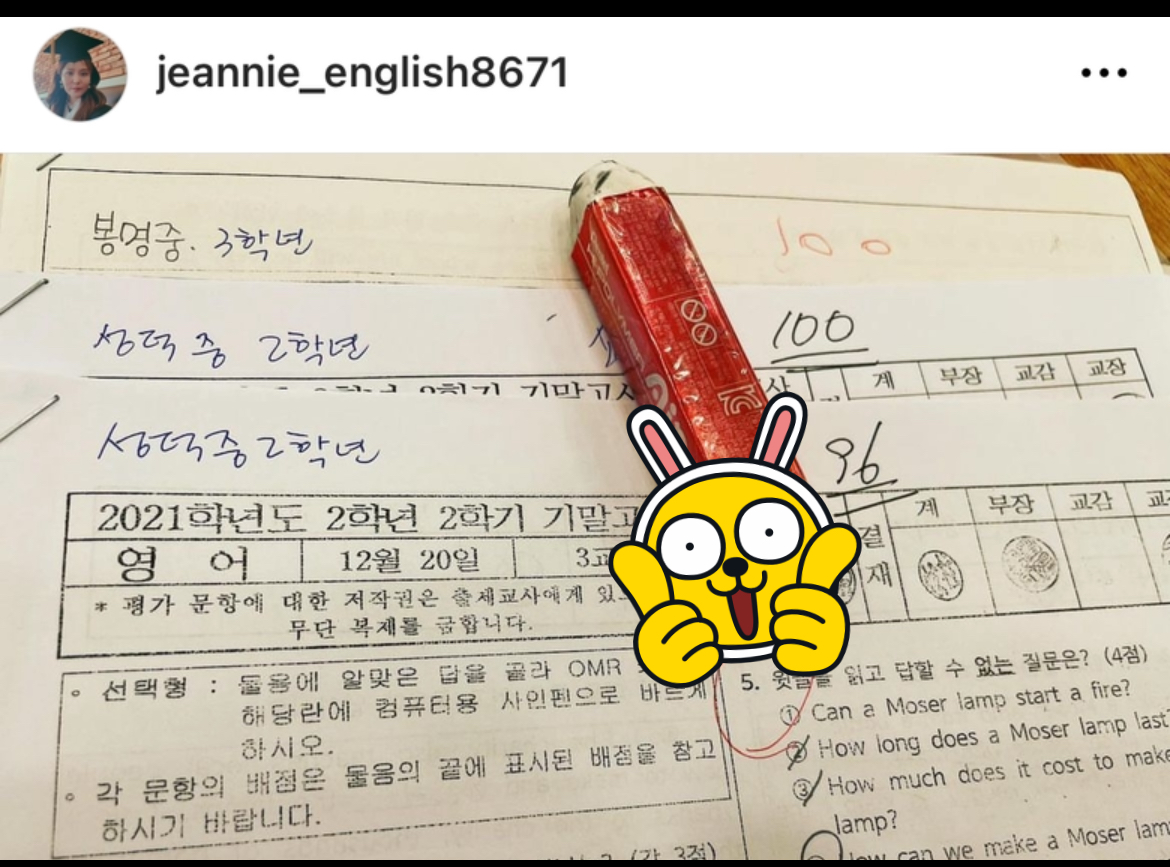 jeannie_english8671
봉명중. 3학년
100
성덕중 2학년
100
계 부장 교감 교장
2학기 기말고사
성덕중 2학년
96
2021학년도 2학년 2학기 기말고
결재 계 부장 교감
영 어 12월 20일 3교
* 평가 문항에 대한 저작권은 출제교사에게 있
무단 복제를 금합니다.
◦ 선택형 : 물음에 알맞은 답을 골라 OMR
해당란에 컴퓨터용 사인펜으로 바르게
하시오.
◦ 각 문항의 배점은 물음의 끝에 표시된 배점을 참고
하시기 바랍니다.
5. 윗글을 읽고 답할 수 없는 질문은? (4점)
① Can a Moser lamp start a fire?
② How long does a Moser lamp last
③ How much does it cost to make
lamp?
How can we make a Moser lam